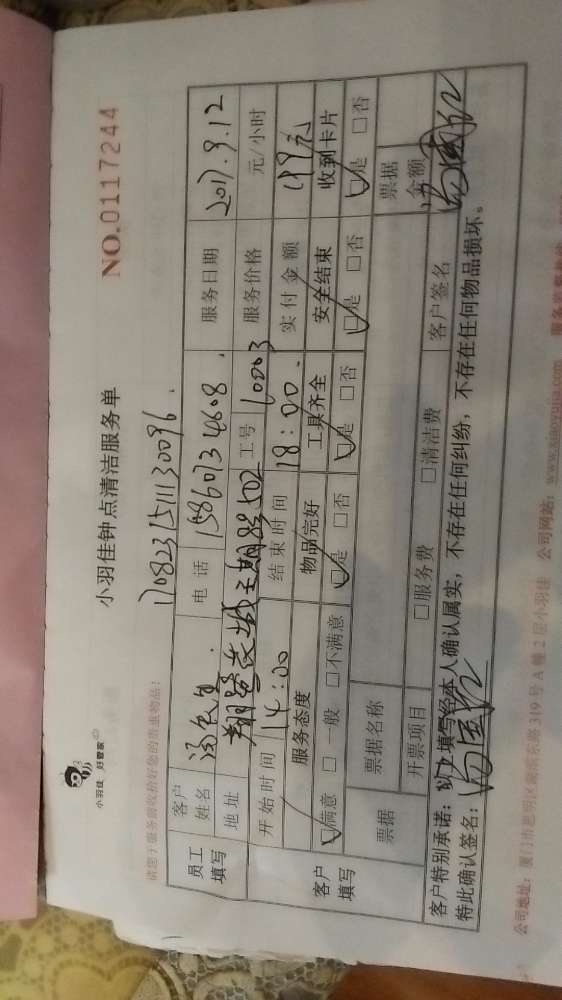 小羽佳 好管家
小羽佳钟点清洁服务单
NO.0117244
170823151130096
请您于服务前收拾好您的贵重物品：
员工填写
客户姓名
电话 15860734608
服务日期 2017.9.12
地址 502
工号 10003
服务价格 元/小时
开始时间 14:00
结束时间 18:00
实付金额 149元
客户填写
服务态度 物品完好 工具齐全 安全结束 收到卡片
☑满意 □一般 □不满意 ☑是 □否 ☑是 □否 ☑是 □否 ☑是 □否
票据 票据名称 票据金额
开票项目 □服务费 □清洁费 客户签名
客户特别承诺：以上填写经本人确认属实，不存在任何纠纷，不存在任何物品损坏。
特此确认签名：
公司地址：厦门市思明区 东路319号A幢2层小羽佳 公司网站：www.xiaoyujia.com